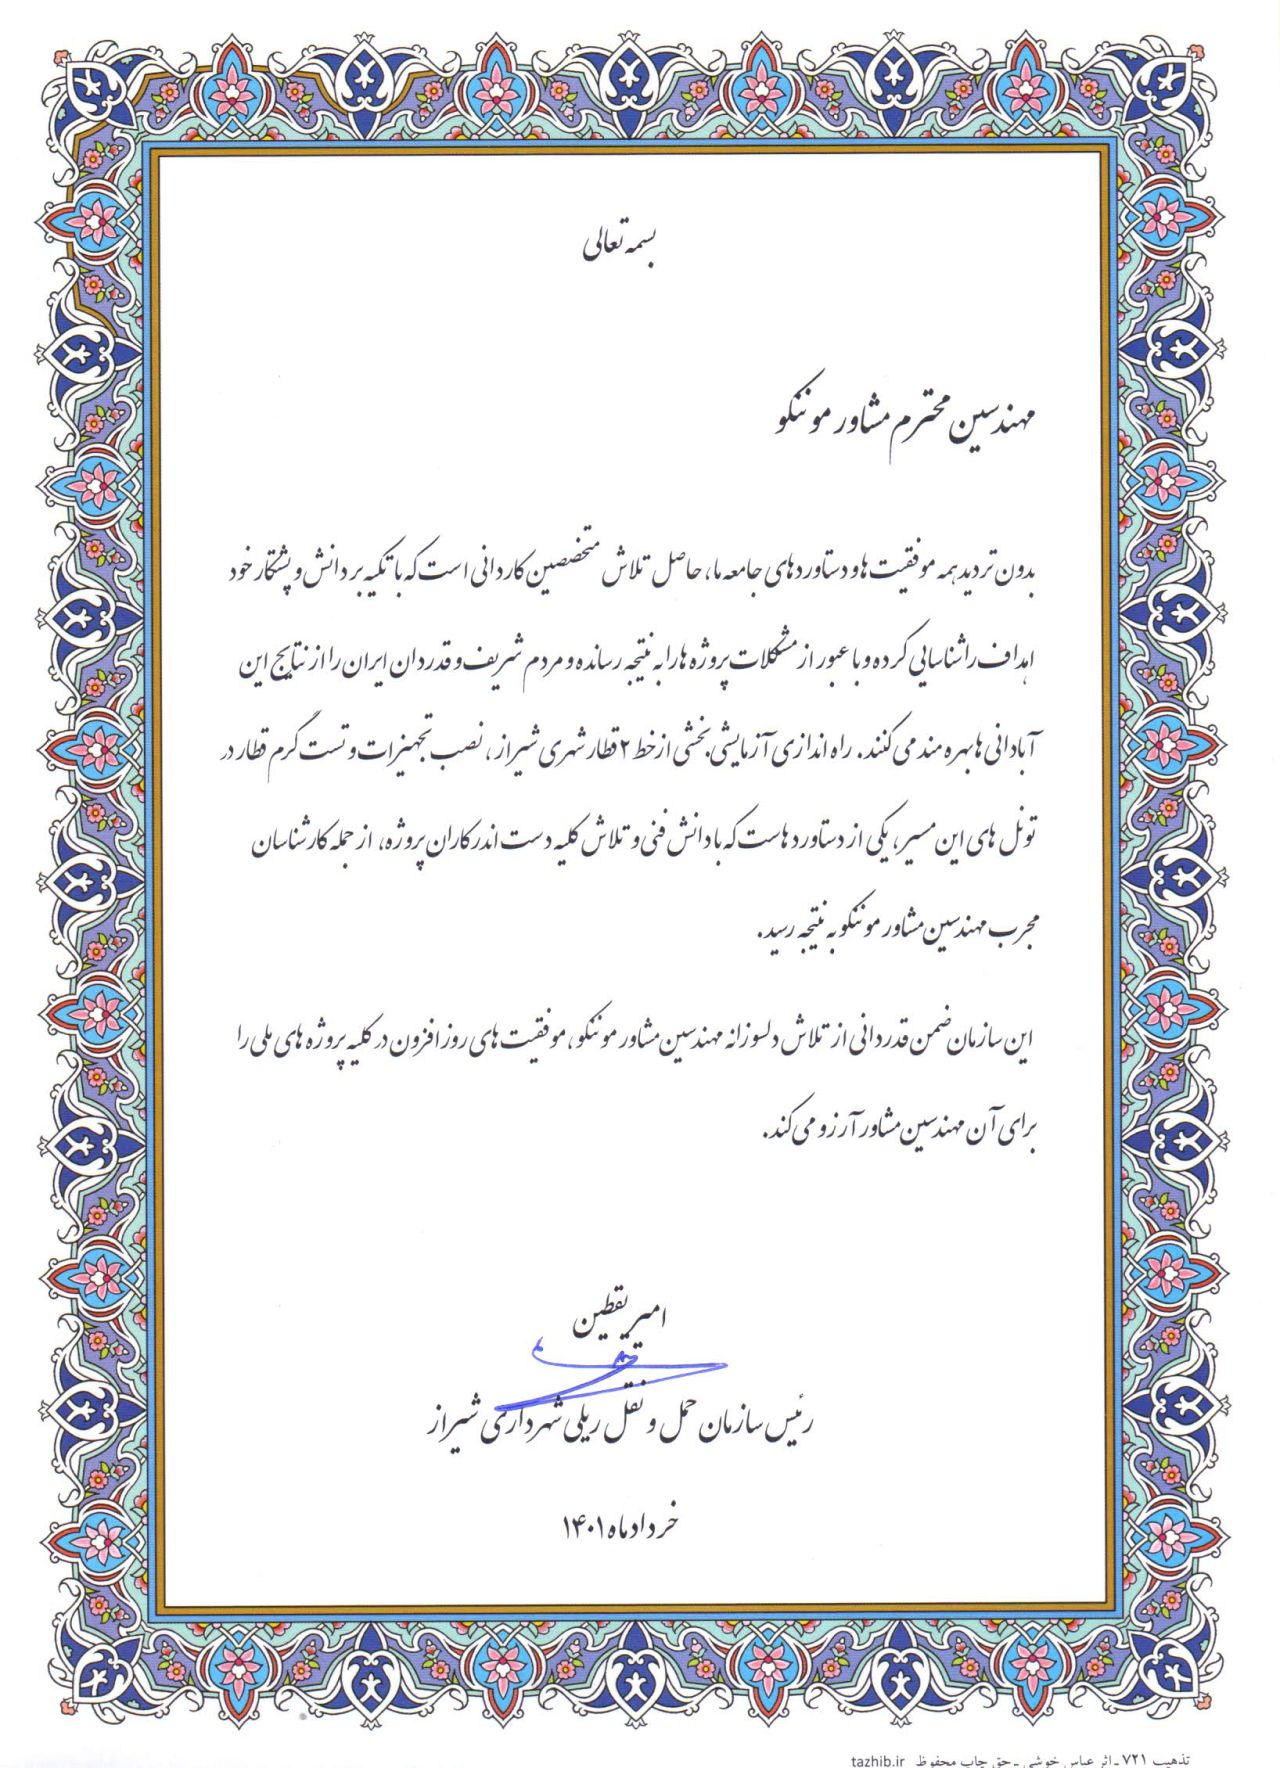 بسمه تعالی
مهندسین محترم مشاور موننکو
بدون تردید همه موفقیت ها و دستاوردهای جامعه ما، حاصل تلاش متخصصین کاردانی است که با تکیه بر دانش و پشتکار خود
اهداف را شناسایی کرده و با عبور از مشکلات پروژه ها را به نتیجه رسانده و مردم شریف و قدردان ایران را از نتایج این
آبادانی ها بهره مند می کنند. راه اندازی آزمایشی بخشی از خط ۲ قطار شهری شیراز، نصب تجهیزات و تست گرم قطار در
تونل های این مسیر، یکی از دستاوردهاست که با دانش فنی و تلاش کلیه دست اندرکاران پروژه، از جمله کارشناسان
مجرب مهندسین مشاور موننکو به نتیجه رسید.
این سازمان ضمن قدردانی از تلاش دلسوزانه مهندسین مشاور موننکو، موفقیت های روز افزون در کلیه پروژه های ملی را
برای آن مهندسین مشاور آرزو می کند.
امیر یقطین
رئیس سازمان حمل و نقل ریلی شهرداری شیراز
خرداد ماه ۱۴۰۱
تذهیب ۷۲۱ - اثر عباس خوشی - حق چاپ محفوظ tazhib.ir